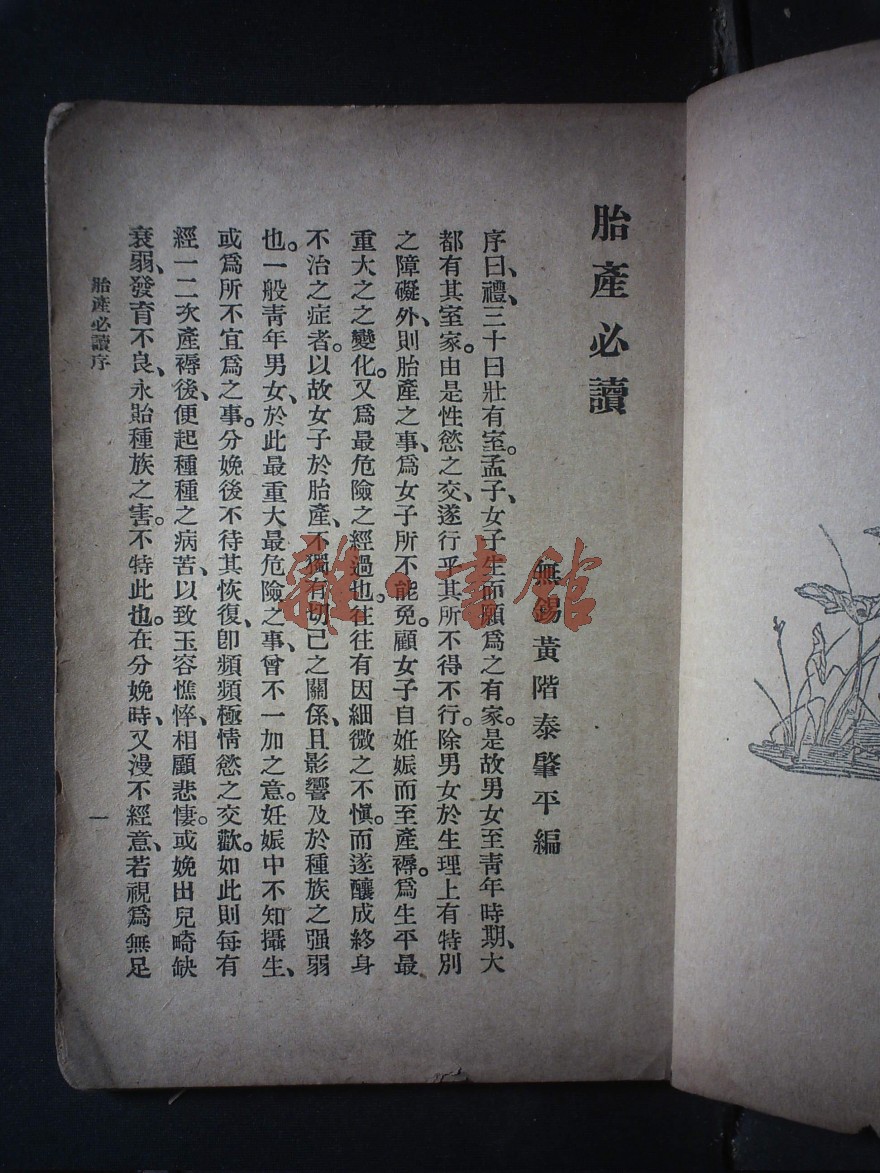 胎產必讀
無錫黃階泰肇平編
序曰、禮、三十曰壯有室。孟子、女子生而願為之有家。是故男女至青年時期、大
都有其室家。由是性慾之交、遂行乎其所不得不行。除男女於生理上有特別
之障礙外、則胎產之事、為女子所不能免。顧女子自妊娠而至產褥。為生平最
重大之之變化。又為最危險之經過也。往往有因細微之不慎。而遂釀成終身
不治之症者。以故女子於胎產、不獨有切己之關係、且影響及於種族之强弱
也。一般青年男女、於此最重大最危險之事、曾不一加之意。妊娠中不知攝生、
或為所不宜為之事。分娩後不待其恢復、卽頻頻極情慾之交歡。如此則每有
經一二次產褥後、便起種種之病苦、以致玉容憔悴、相顧悲悽。或娩出兒畸缺
衰弱、發育不良、永貽種族之害。不特此也。在分娩時、又漫不經意、若視為無足
胎產必讀序
一
雜·書館